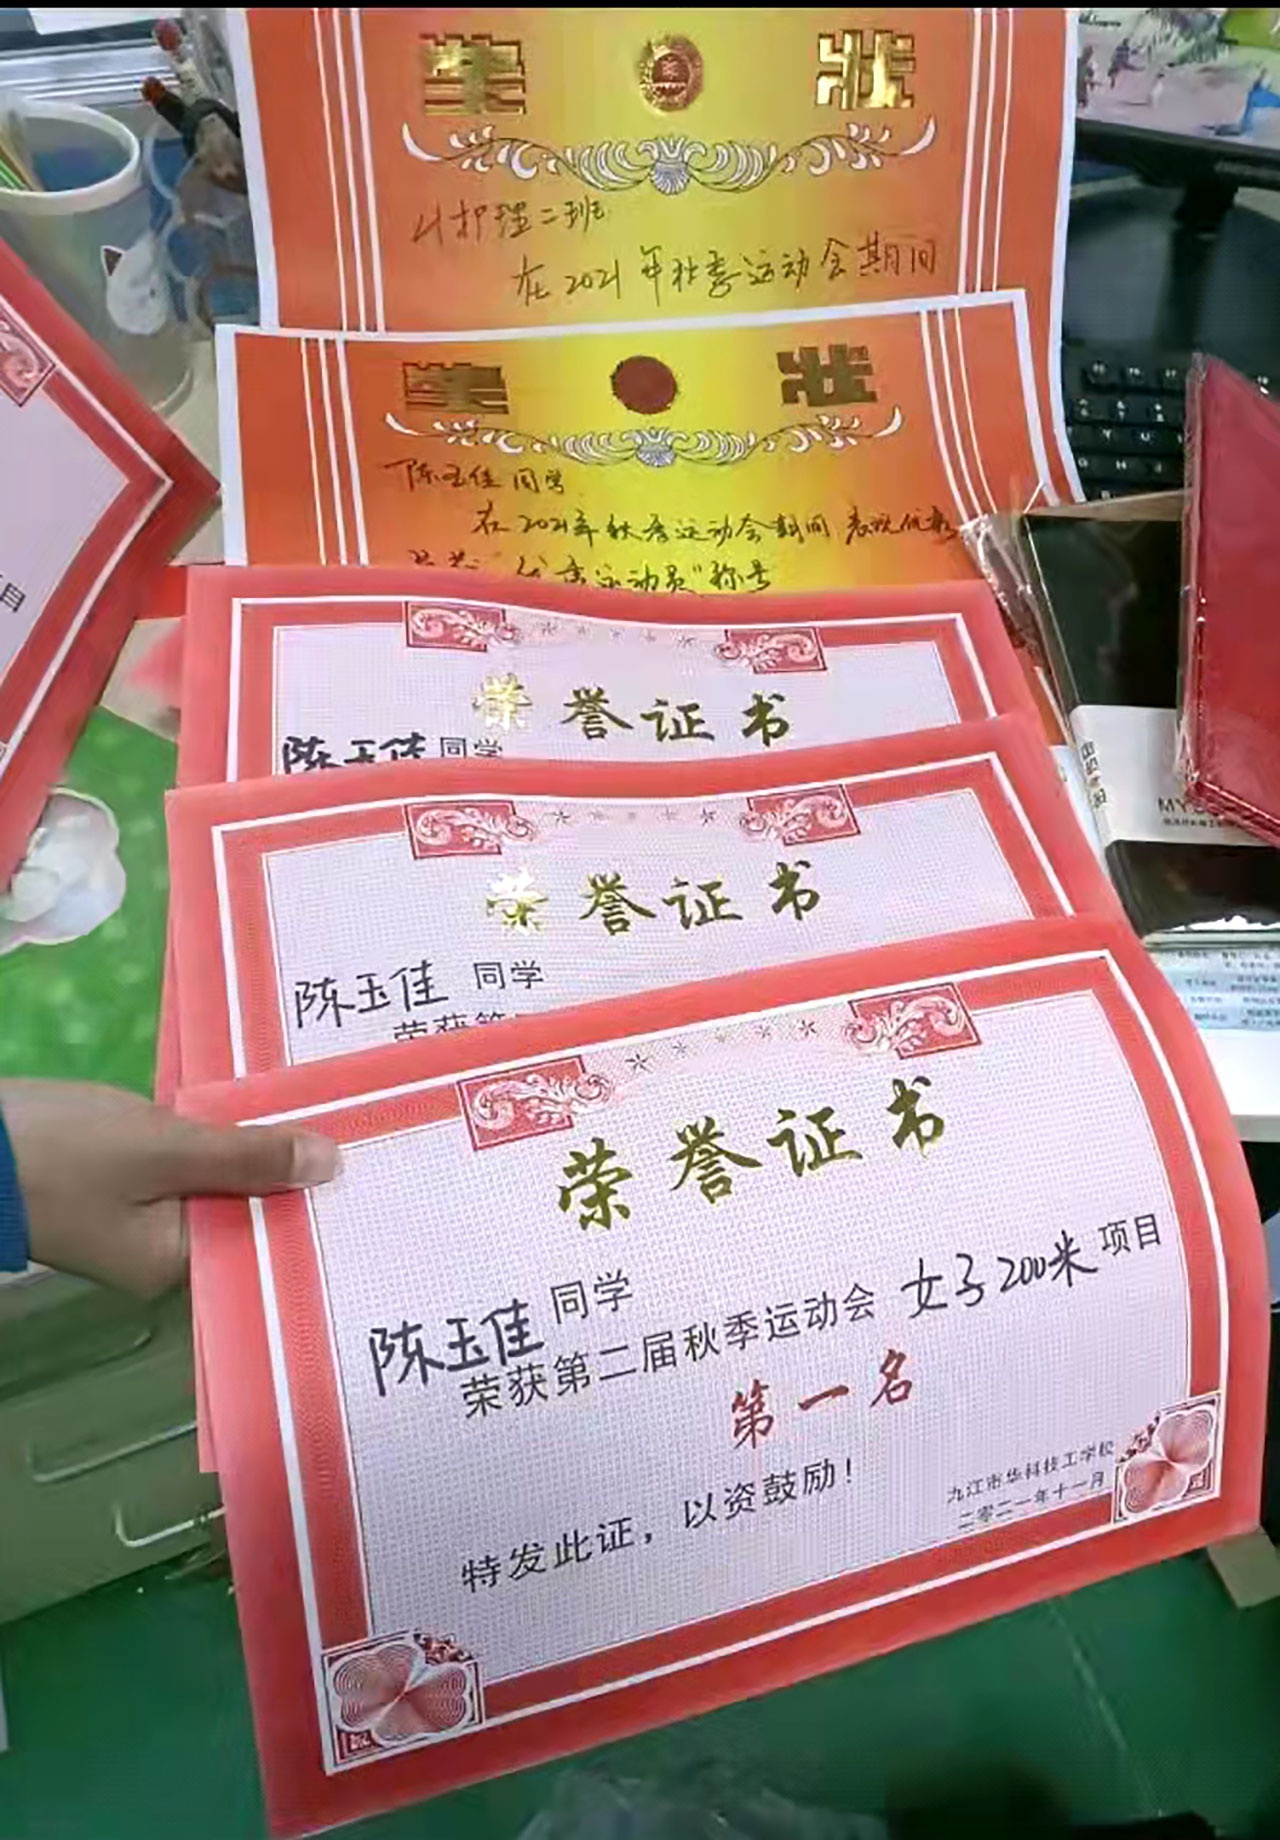 奖 状
21护理二班
在2021年秋季运动会期间
奖 状
陈玉佳 同学
在2021年秋季运动会期间 表现优秀
"优秀运动员"称号
荣誉证书
陈玉佳 同学
荣誉证书
陈玉佳 同学
荣获第
荣誉证书
陈玉佳 同学
荣获第二届秋季运动会 女子200米 项目
第一名
特发此证，以资鼓励！
九江市华科技工学校
二零二一年十一月
项目
MY